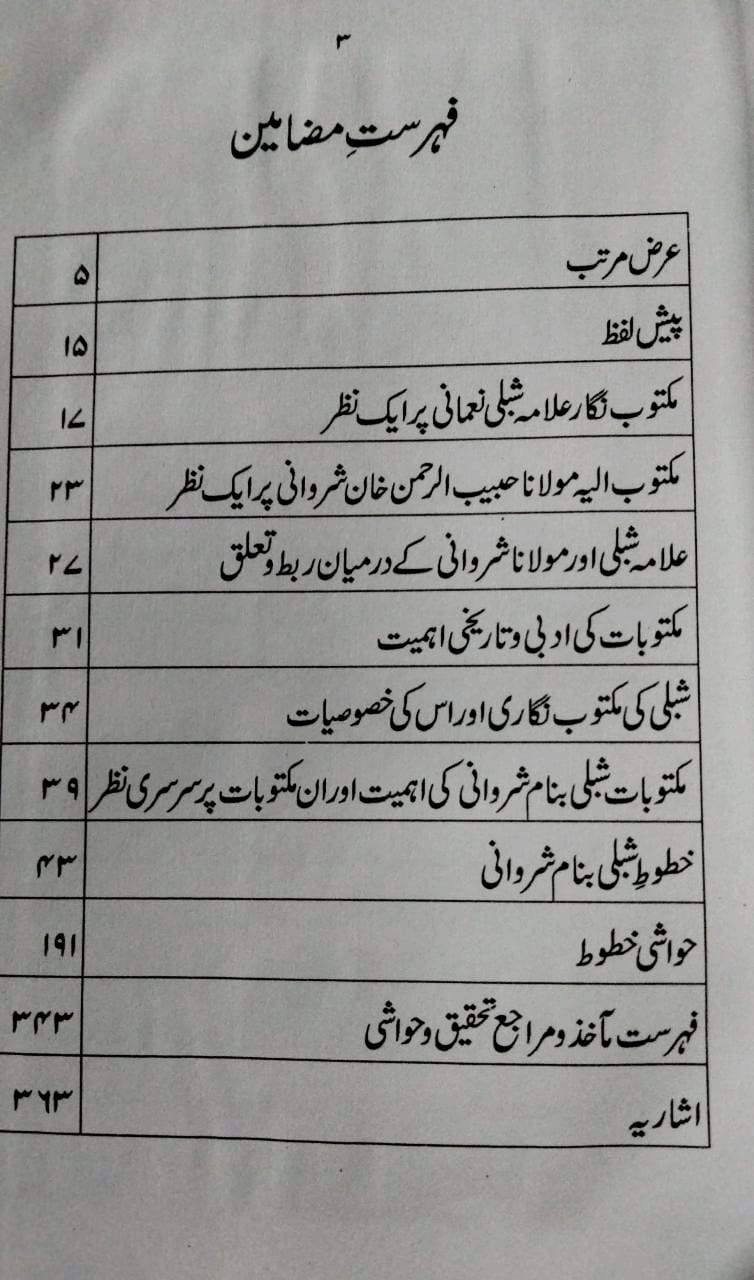 ۳
فہرستِ مضامین
عرض مرتب ۵
پیش لفظ ۱۵
مکتوب نگار علامہ شبلی نعمانی پر ایک نظر ۱۷
مکتوب الیہ مولانا حبیب الرحمن خان شروانی پر ایک نظر ۲۳
علامہ شبلی اور مولانا شروانی کے درمیان ربط و تعلق ۲۷
مکتوبات کی ادبی و تاریخی اہمیت ۳۱
شبلی کی مکتوب نگاری اور اس کی خصوصیات ۳۴
مکتوبات شبلی بنام شروانی کی اہمیت اور ان مکتوبات پر سرسری نظر ۳۹
خطوطِ شبلی بنام شروانی ۴۳
حواشی خطوط ۱۹۱
فہرست مآخذ و مراجع تحقیق و حواشی ۳۴۳
اشاریہ ۳۶۳